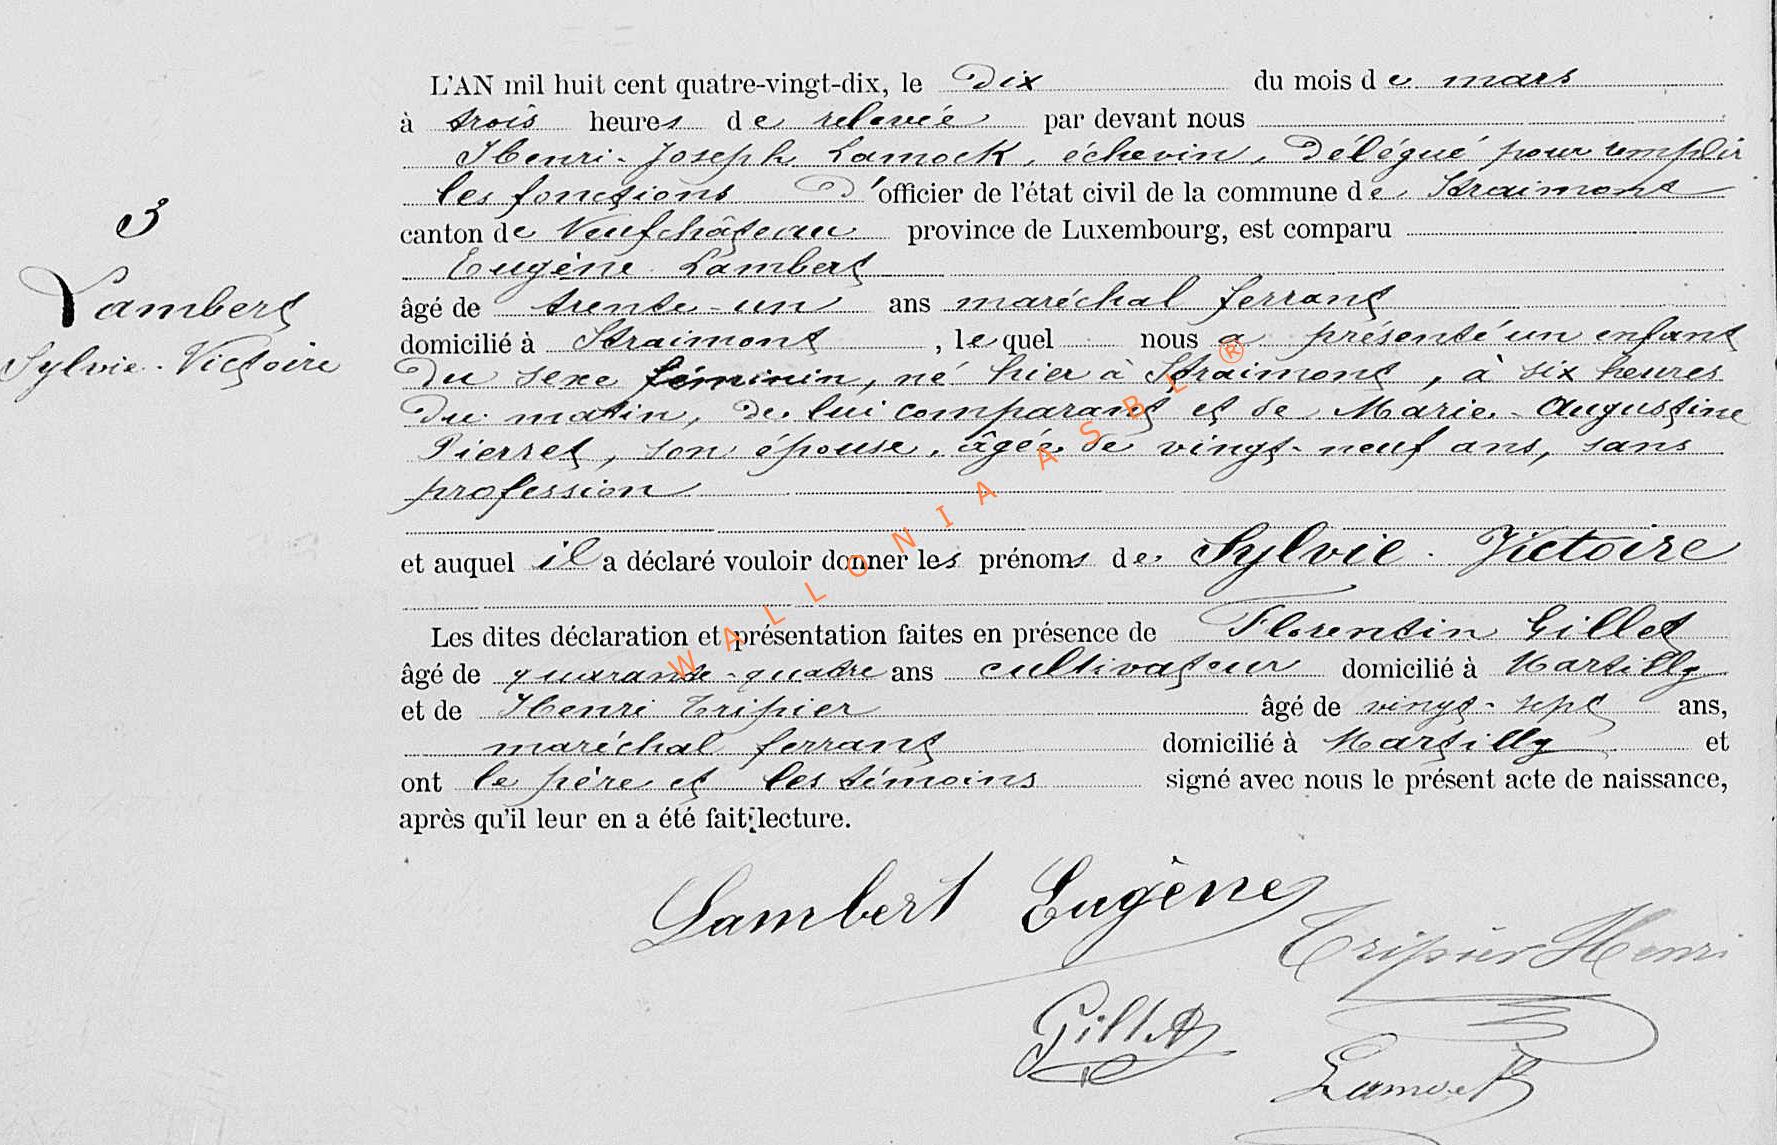 L'AN mil huit cent quatre-vingt-dix, le Dix du mois de mars
à trois heures de relevée par devant nous
Henri-Joseph Lamock, échevin, Délégué pour remplir
les fonctions D'officier de l'état civil de la commune de Straimont
canton de Neufchâteau province de Luxembourg, est comparu
Eugène Lambert
âgé de trente-un ans maréchal ferrant
domicilié à Straimont, lequel nous a présenté un enfant
Du sexe féminin, né hier à Straimont, à six heures
Du matin, de lui comparant et de Marie-Augustine
Pierret, son épouse, âgée de vingt-neuf ans, sans
profession
et auquel il a déclaré vouloir donner les prénoms de Sylvie-Victoire
Les dites déclaration et présentation faites en présence de Florentin Gillet
âgé de quarante-quatre ans cultivateur domicilié à Martilly
et de Henri Tripier âgé de vingt-sept ans,
maréchal ferrant domicilié à Martilly et
ont le père et les témoins signé avec nous le présent acte de naissance,
après qu'il leur en a été fait lecture.
3
Lambert
Sylvie-Victoire
Lambert Eugène
Tripier Henri
Gillet
Lamock
WALLONIA ASBL ®